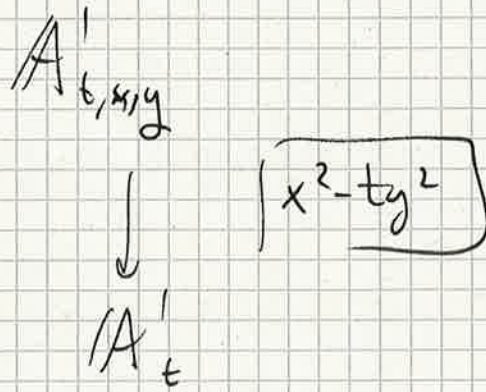 𝔸¹_{t,x,y}
↓
x² - ty²
𝔸¹_t